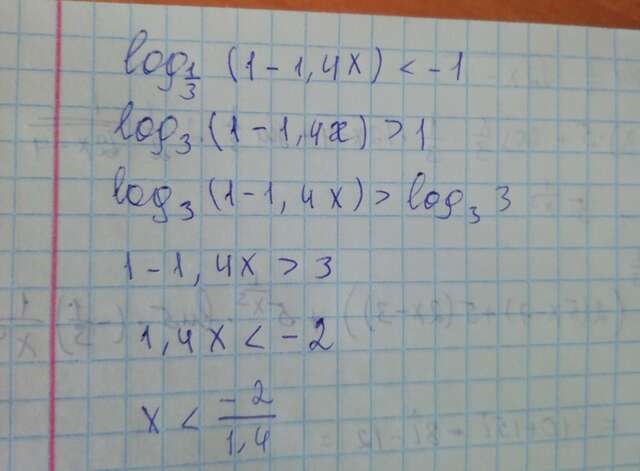 log_{1/3} (1-1,4x) < -1
log_3 (1-1,4x) > 1
log_3 (1-1,4x) > log_3 3
1-1,4x > 3
1,4x < -2
x < -2/1,4